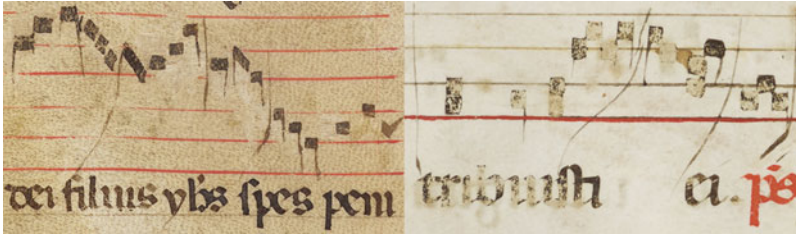 dei filius yħs spes peni
tribuisti ei. p̄s